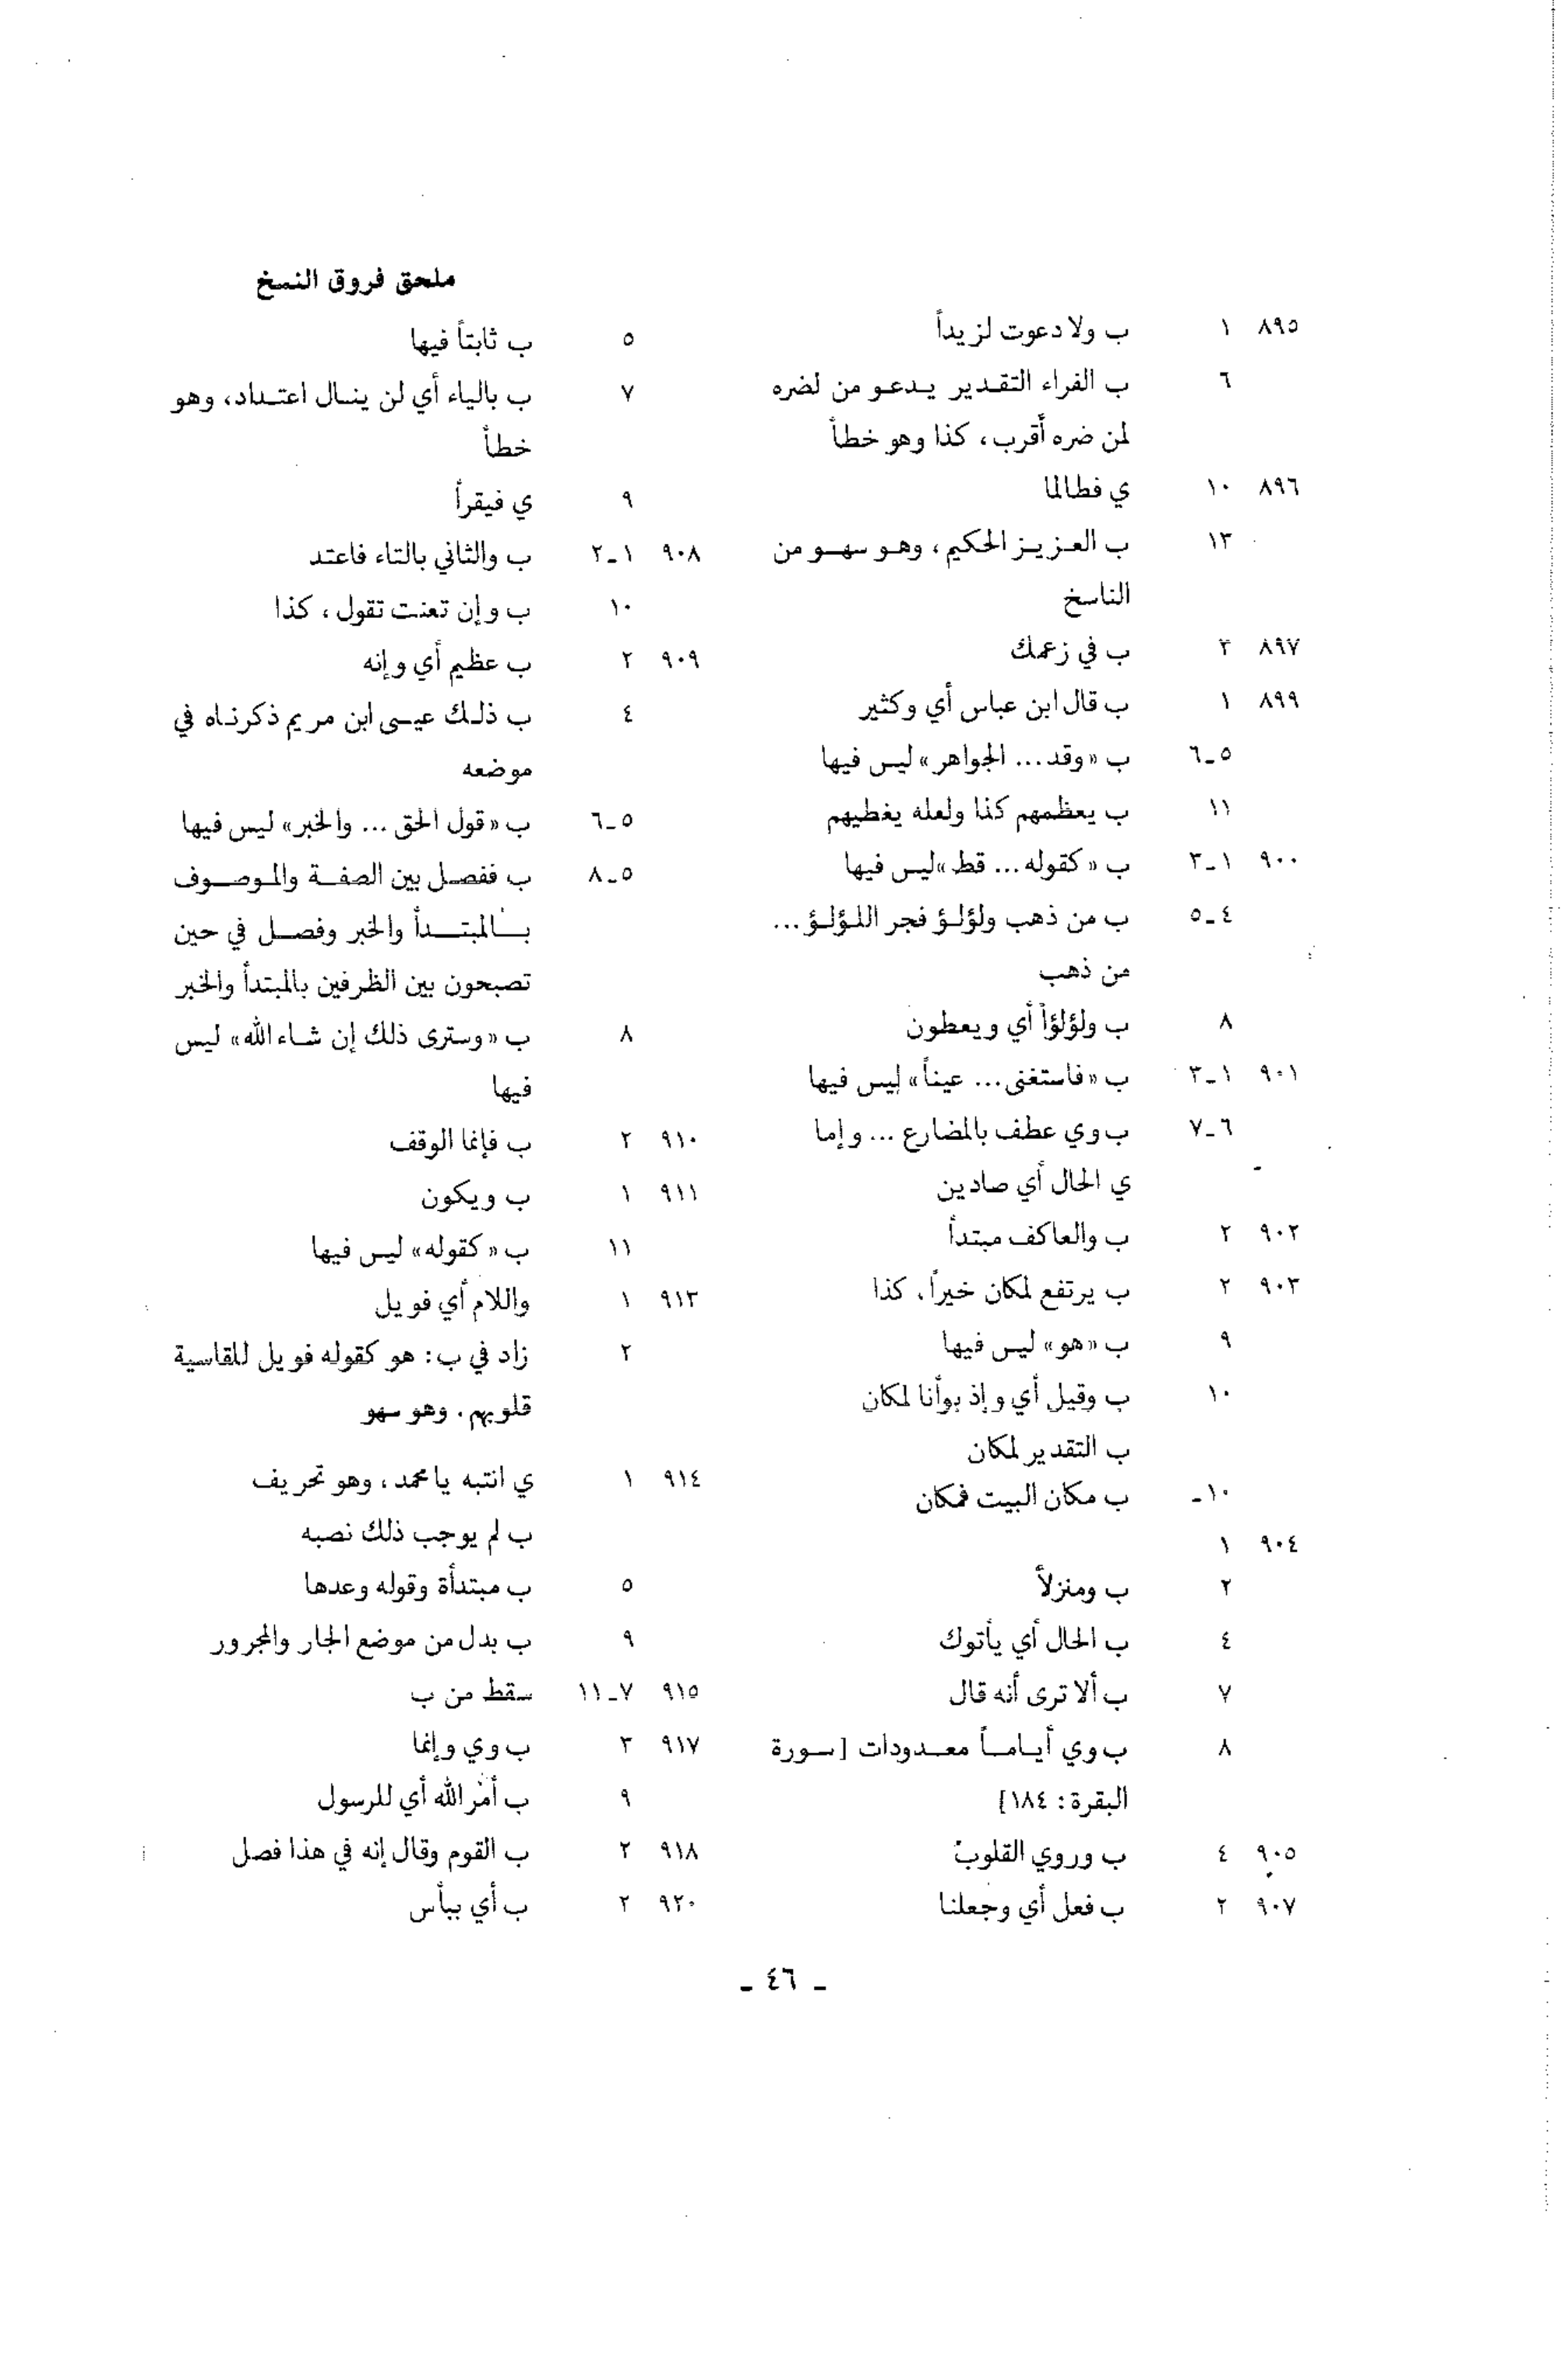 ملحق فروق النسخ
٨٩٥ ١ ب ولا دعوت لزيداً
٦ ب الفراء التقدير يدعو من لضره
لمن ضره أقرب، كذا وهو خطأ
٨٩٦ ١٠ ي فطالما
١٣ ب العزيز الحكيم، وهو سهو من
الناسخ
٨٩٧ ٣ ب في زعمك
٨٩٩ ١ ب قال ابن عباس أي وكثير
٥ـ٦ ب «وقد... الجواهر» ليس فيها
١١ ب يعظمهم كذا ولعله يغطيهم
٩٠٠ ١ـ٣ ب «كقوله... قط» ليس فيها
٤ـ٥ ب من ذهب ولؤلؤ فجر اللؤلؤ...
من ذهب
٨ ب ولؤلؤاً أي ويعطون
٩٠١ ١ـ٣ ب «فاستغنى... عيناً» ليس فيها
٦ـ٧ ب وي عطف بالمضارع... وإما
ي الحال أي صادين
٩٠٢ ٢ ب والعاكف مبتدأ
٩٠٣ ٢ ب يرتفع لمكان خيراً، كذا
٩ ب «هو» ليس فيها
١٠ ب وقيل أي وإذ بوأنا لمكان
ب التقدير لمكان
١٠ـ ب مكان البيت فمكان
٩٠٤ ١
٢ ب ومنزلاً
٤ ب الحال أي يأتوك
٧ ب ألا ترى أنه قال
٨ ب وي أياماً معدودات [سورة
البقرة: ١٨٤]
٩٠٥ ٤ ب وروي القلوبُ
٩٠٧ ٢ ب فعل أي وجعلنا
٥ ب ثابتاً فيها
٧ ب بالياء أي لن ينال اعتداد، وهو
خطأ
٩ ي فيقرأ
٩٠٨ ١ـ٢ ب والثاني بالتاء فاعتد
١٠ ب وإن تعنت تقول، كذا
٩٠٩ ٢ ب عظيم أي وإنه
٤ ب ذلك عيسى ابن مريم ذكرناه في
موضعه
٥ـ٦ ب «قول الحق... والخبر» ليس فيها
٥ـ٨ ب ففصل بين الصفة والموصوف
بالمبتدأ والخبر وفصل في حين
تصبحون بين الظرفين بالمبتدأ والخبر
٨ ب «وسترى ذلك إن شاء الله» ليس
فيها
٩١٠ ٢ ب فإنما الوقف
٩١١ ١ ب ويكون
١١ ب «كقوله» ليس فيها
٩١٣ ١ واللام أي فويل
٢ زاد في ب: هو كقوله فويل للقاسية
قلوبهم. وهو سهو
٩١٤ ١ ي انتبه يا محمد، وهو تحريف
ب لم يوجب ذلك نصبه
٥ ب مبتدأة وقوله وعدها
٩ ب بدل من موضع الجار والمجرور
٩١٥ ٧ـ١١ سقط من ب
٩١٧ ٣ ب وي وإنما
٩ ب أمر الله أي للرسول
٩١٨ ٢ ب القوم وقال إنه في هذا فصل
٩٢٠ ٢ ب أي ببأس
ـ ٤٦ ـ